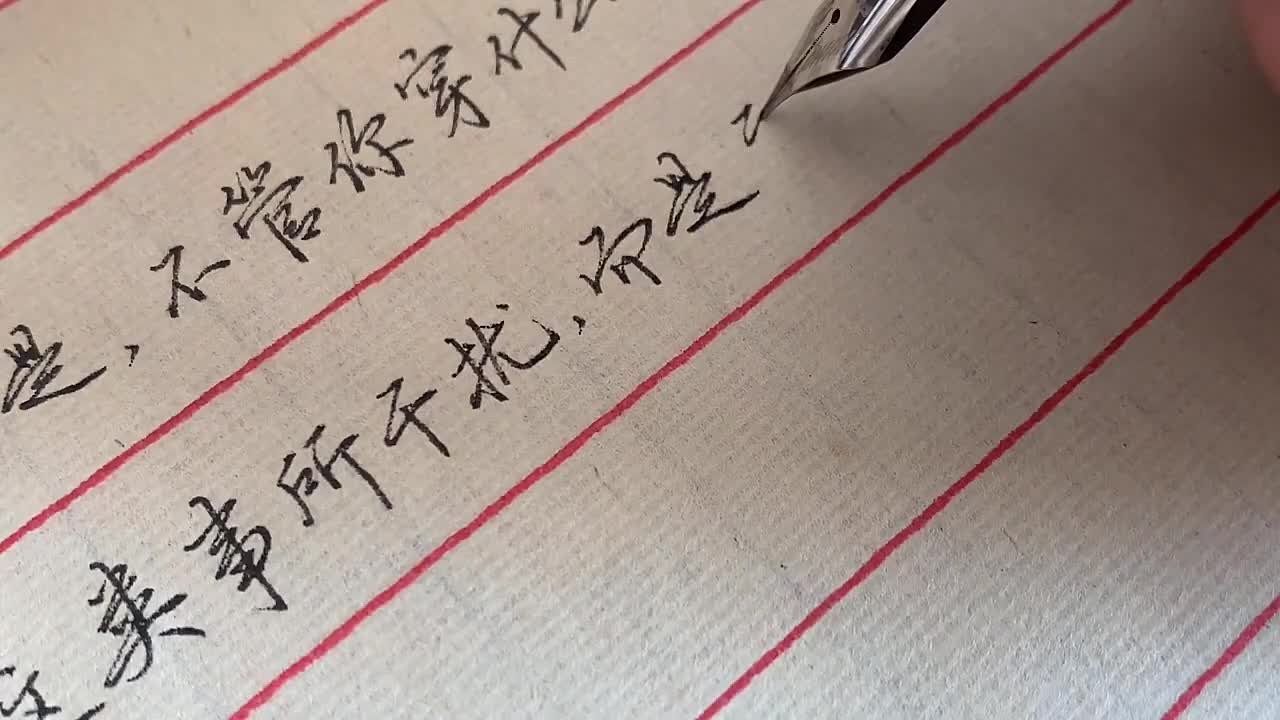 是，不管你穿什么
这类事所干扰，而是